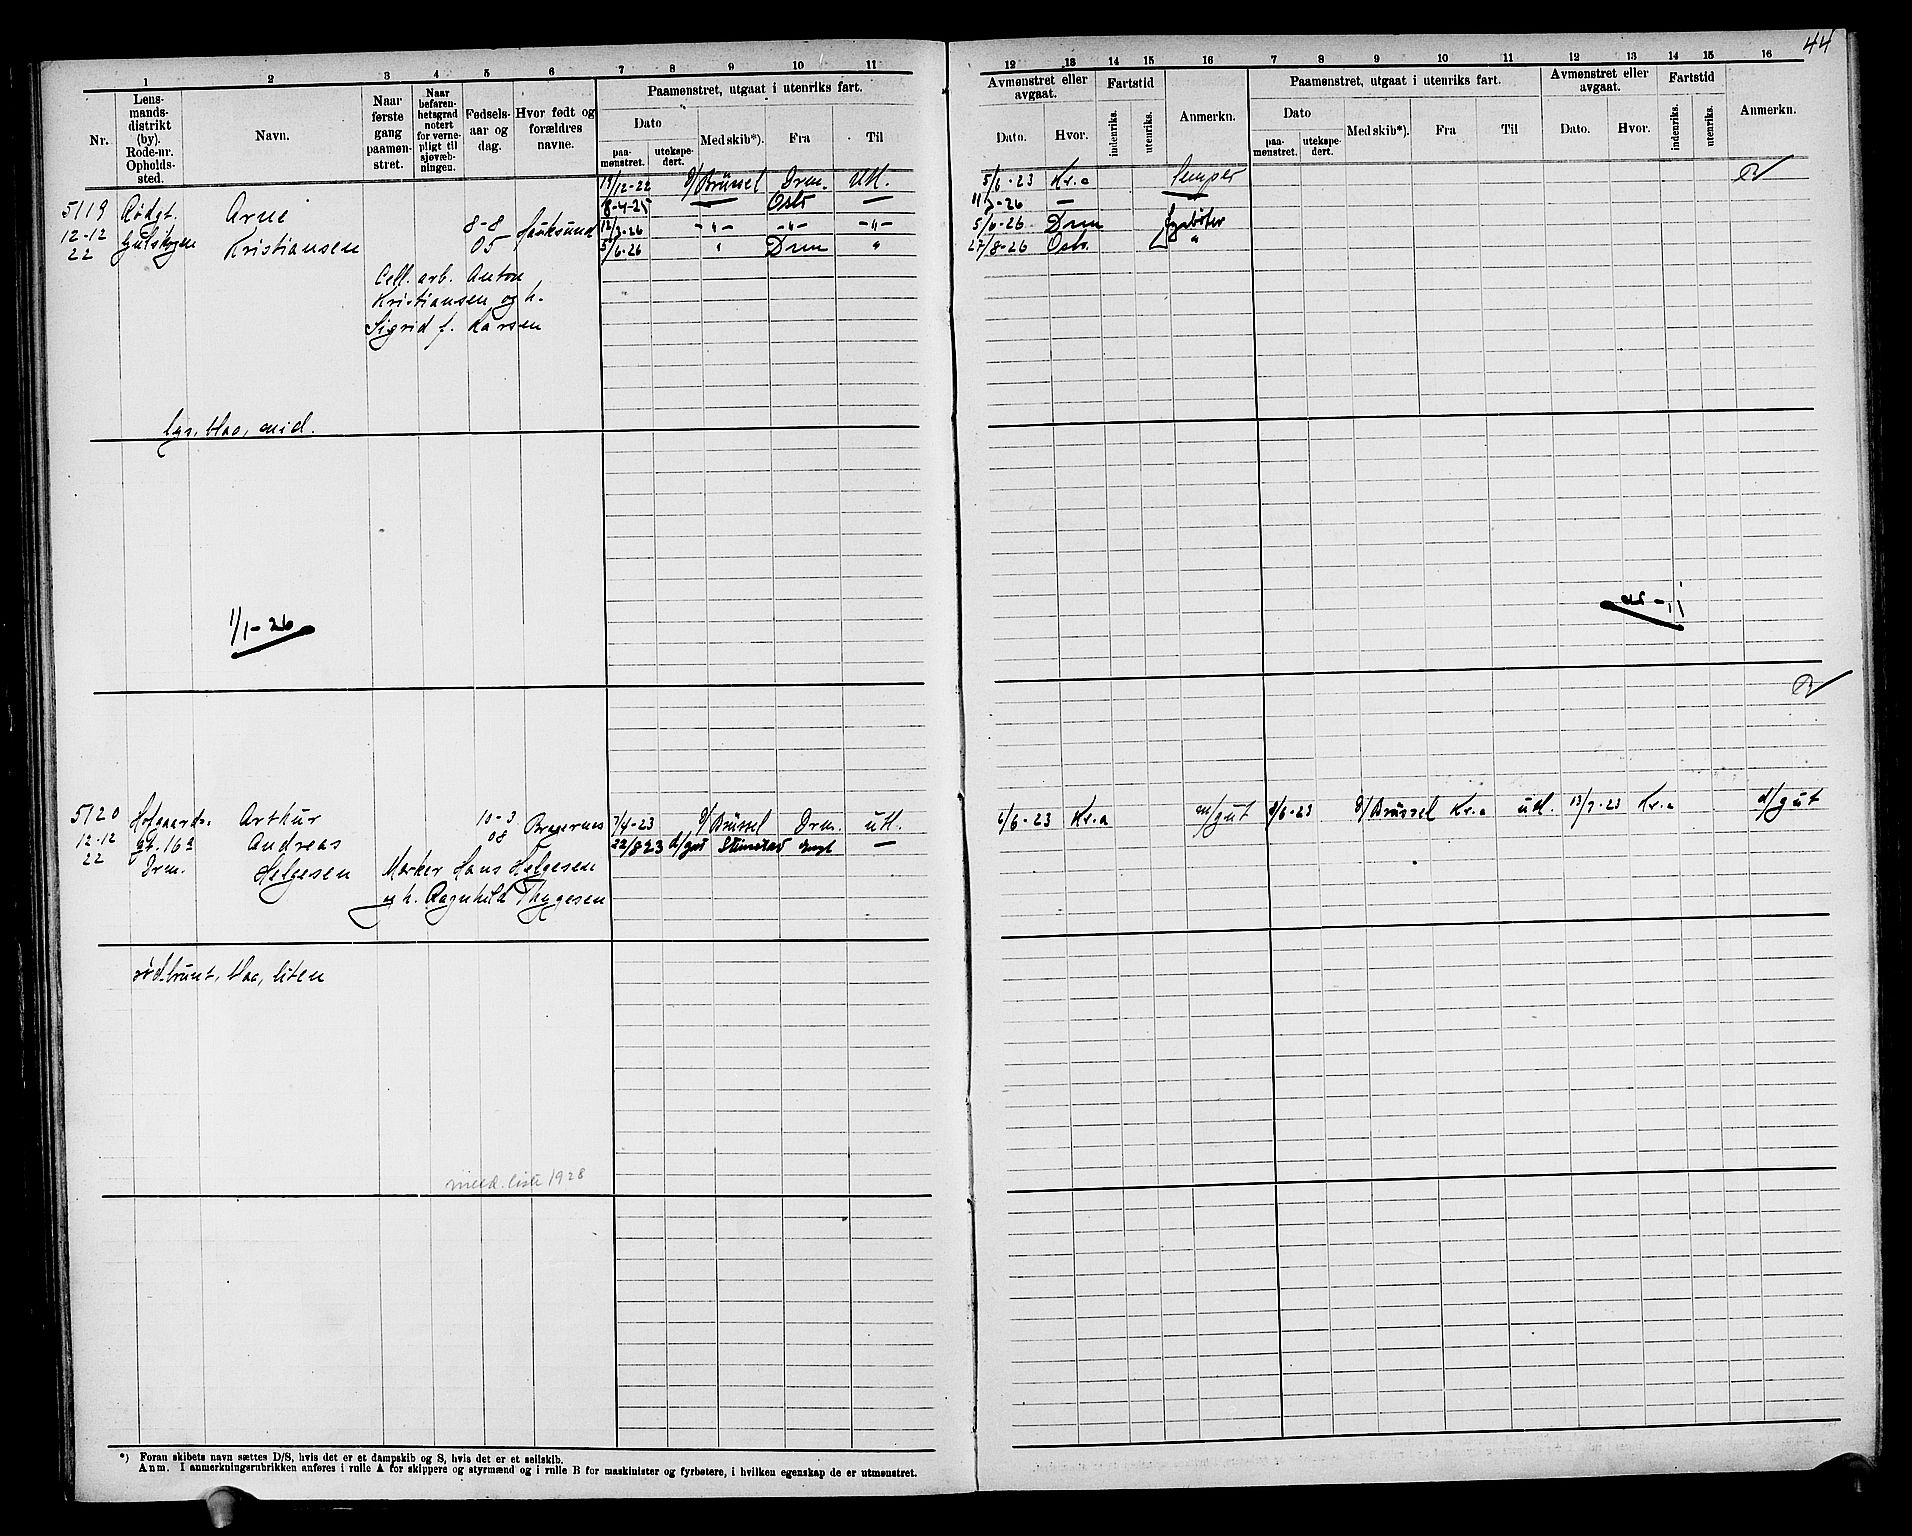 44
1 2 3 4 5 6 7 8 9 10 11
Nr.
Lens-
mands-
distrikt
(by).
Rode-nr.
Opholds-
sted.
Navn.
Naar
første
gang
paamøn-
stret.
Naar
befaren-
hetsgrad
notert
for verne-
pligt til
sjøvæb-
ningen.
Fødsels-
aar og
dag.
Hvor født og
forældres
navne.
Paamønstret, utgaat i utenriks fart.
Dato
paa-
mønstret.
utekspe-
dert.
Med skib*).
Fra
Til
12 13 14 15 16 7 8 9 10 11 12 13 14 15 16
Avmønstret eller
avgaat.
Dato. Hvor.
Fartstid
indenriks. utenriks.
Anmerkn.
Paamønstret, utgaat i utenriks fart.
Dato
paa-
mønstret.
utekspe-
dert.
Med skib*). Fra Til
Avmønstret eller
avgaat.
Dato. Hvor.
Fartstid
indenriks. utenriks.
Anmerkn.
19/12-22 D/ Brüssel Drm. Utl.
5/6-23 Kr.a
5119 Rødgt. Arne 8-4-25 — Oslo —
-26 —
12-12 Gulskogen Kristiansen 8-8 12/3-26 -"- -"- -"-
5/6-26 Drm fyrbøter
22 05 5/6-26 " Drm "
27/8-26 Oslo "
Cell. arb. Anton
Kristiansen og h.
Sigrid f. Larsen
lys, blaa, mid.
1/1-26
5120 Hofgaards. Arthur 10-3 Bragernes 7/4-23 D/ Brüssel Drm. utl.
6/6-23 Kr.a m/gut 8/6-23 D/ Brüssel Kr.a utl. 13/7-23 Kr.a d/gut
12-12 gt. 16a Andreas 08 22/8 23 d/gut —
22 Drm. Helgesen Mærker Hans Helgesen
og h. Ragnhild Thygesen
rødbrunt, blaa, liten
med. liste 1928
*) Foran skibets navn sættes D/S, hvis det er et dampskib og S, hvis det er et seilskib.
Anm. I anmerkningsrubrikken anføres i rulle A for skippere og styrmænd og i rulle B for maskinister og fyrbøtere, i hvilken egenskap de er utmønstret.